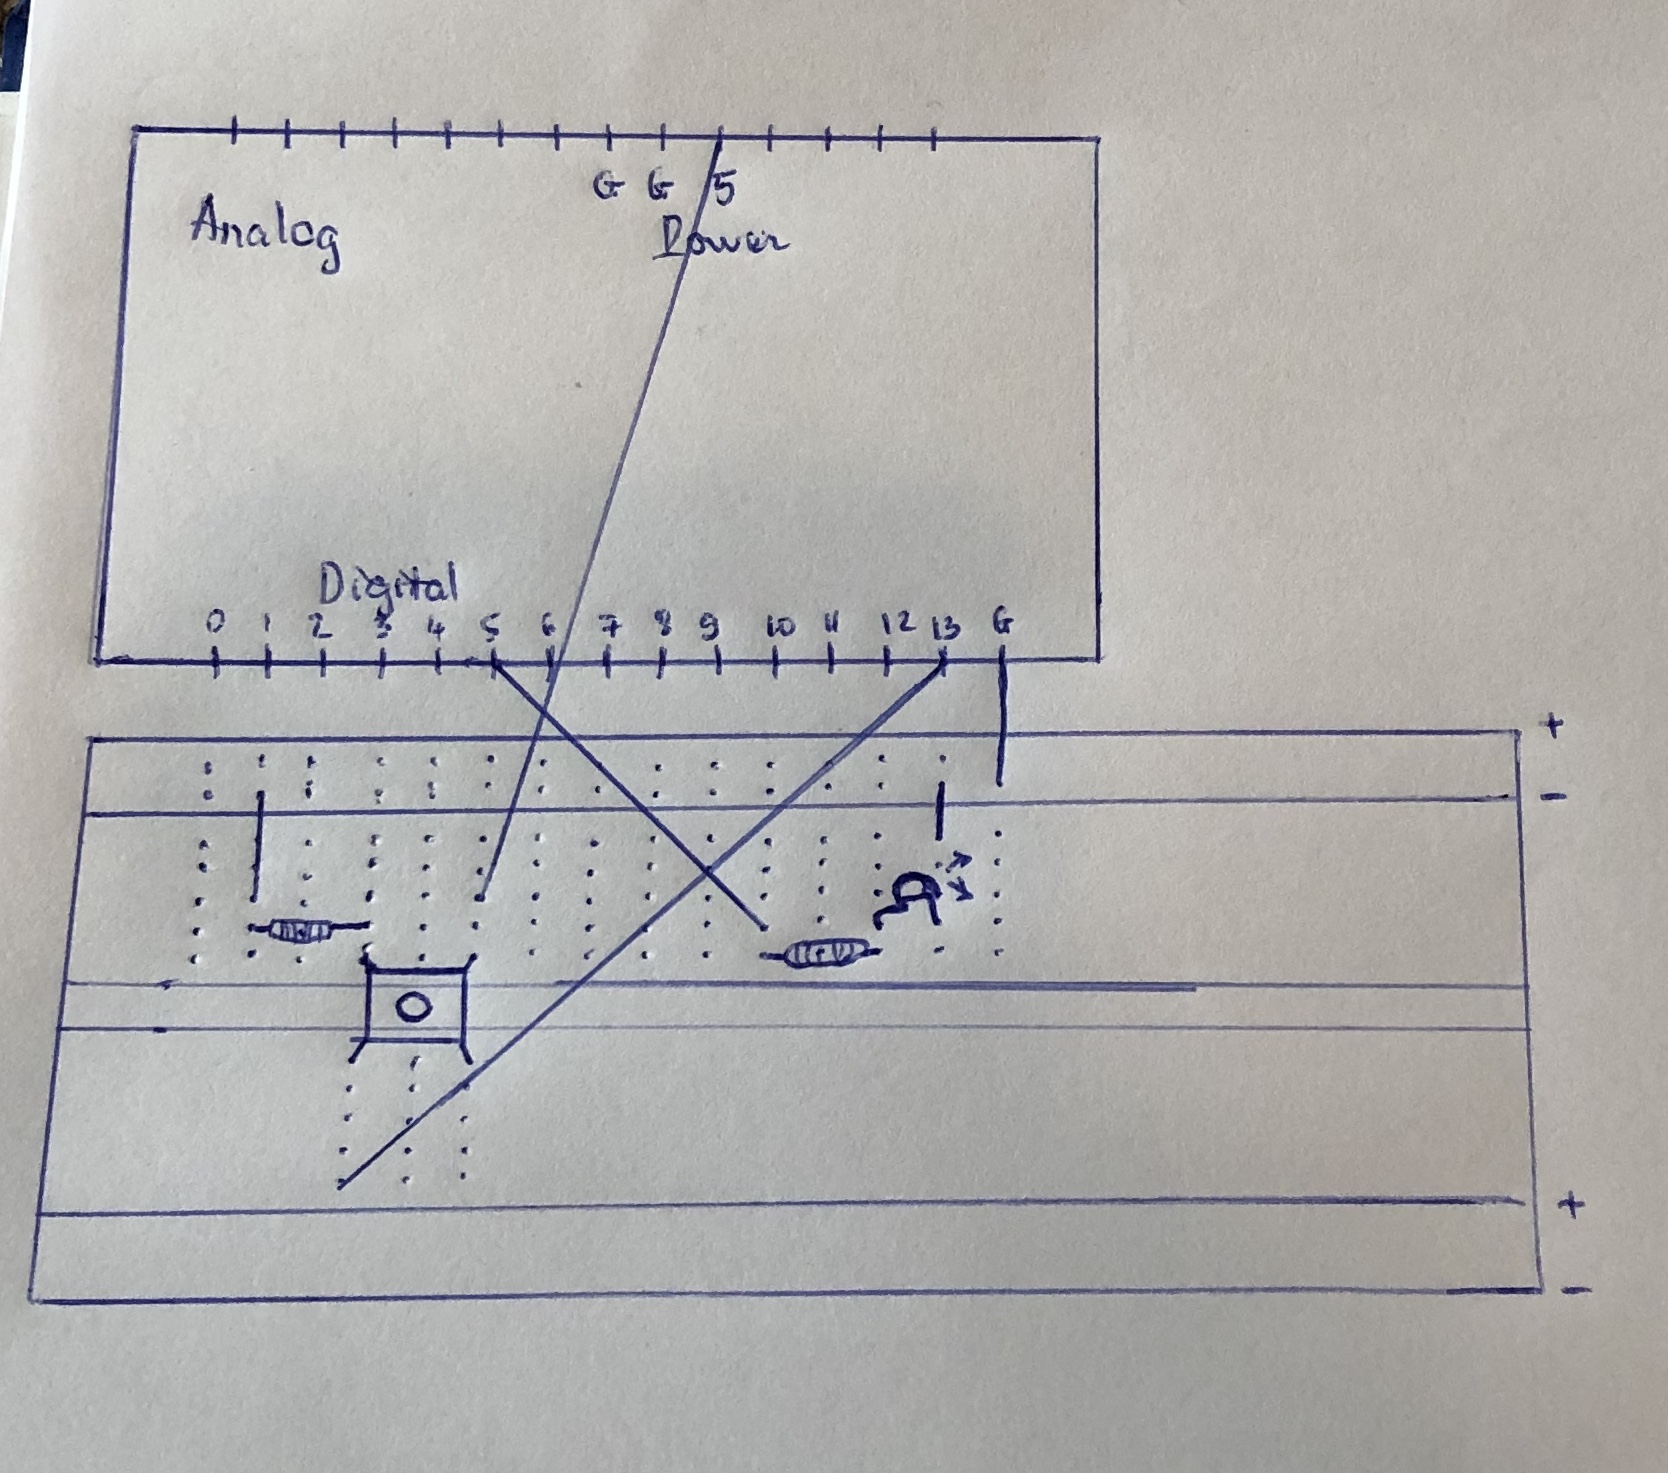 G G 5
Analog
Power
Digital
0 1 2 3 4 5 6 7 8 9 10 11 12 13 G
+
-
+
-